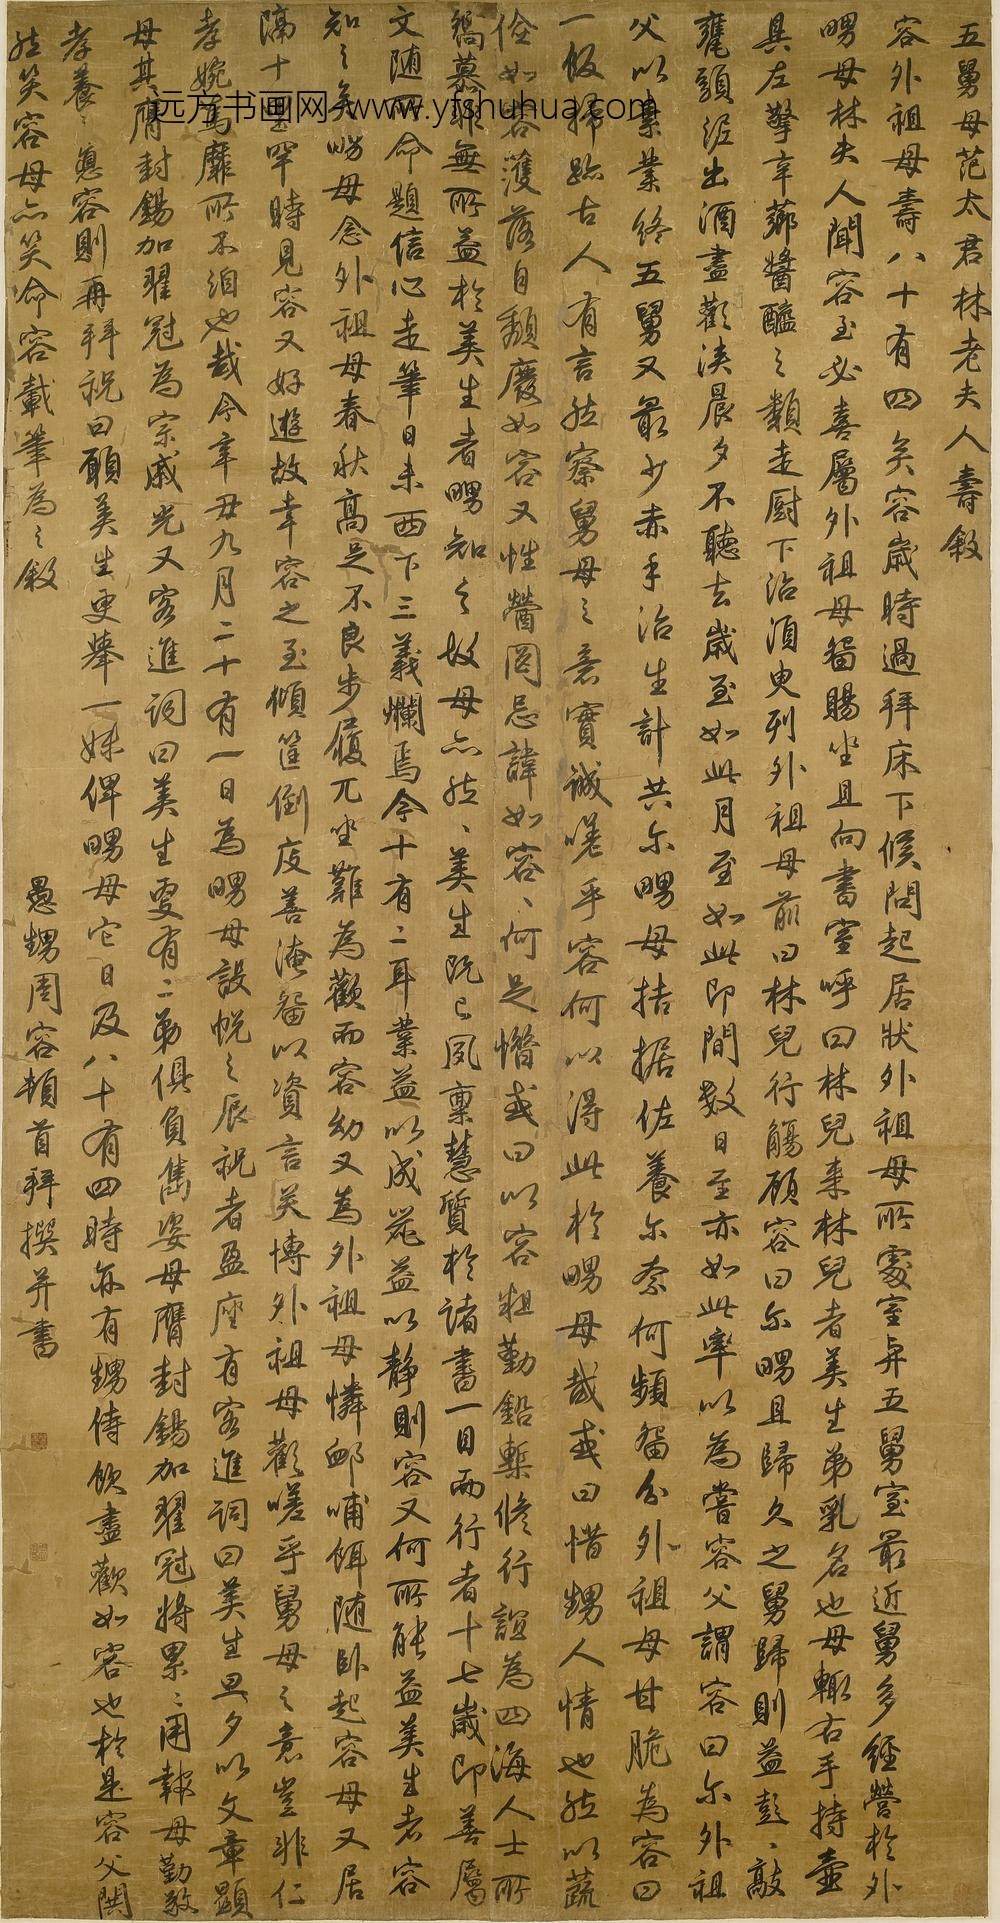 五舅母范太君林老夫人壽敘
容外祖母壽八十有四矣容歲時過拜床下候問起居狀外祖母所處室與五舅室最近舅多經營於外
舅母林夫人聞容至必喜屬外祖母留賜坐且向書室呼曰林兒來林兒者美生弟乳名也母輒右手持壺
具左擎辛薌醬醯之類走厨下治湏臾列外祖母前曰林兒行觴顧容曰尓舅且歸久之舅歸則益彭〻敲
甕頭泥出酒盡歡浹晨夕不聽去歲至如此月至如此即間數日至亦如此率以為嘗容父謂容曰尓外祖
父以業業終五舅又最少赤手治生計共尓舅母拮据佐養尓奈何頻留分外祖母甘脆為容曰
一飯掃跡古人有言然察舅母之意實誠嗟乎容何以得此於舅母哉或曰惜甥人情也然以蔬
侄如容濩落自頹廢如容又性嚮罔忌諱如容〻何足惜或曰以容粗勤鉛槧修行誼為四海人士所
嚮慕非無所益於美生者舅知之故母亦然〻美生既已夙稟慧質於諸書一目兩行者十七歲即善屬
文随所命題信心走筆日未西下三義爛焉今十有二耳業益以成菀益以静則容又何所能益美生者容
知之矣嘮母念外祖母春秋高足不良步履兀坐難為歡而容幼又為外祖母憐邮哺餌随卧起容母又居
隔十里罕時見容又好遊故幸容之至傾筐倒庋善淹留以資言笑博外祖母歡嗟乎舅母之意豈非仁
孝婉篤靡所不洎也哉今年毋九月二十有一日為舅母設帨之辰祝者盈座有客進詞曰美生旦夕以文章顯
母其膺封錫加翟冠為宗戚光又客進詞曰美生更有二弟俱負雋姿母膺封錫加翟冠將累〻用報母勤教
孝養〻意容則再拜祝曰願美生更舉一妹俾舅母它日及八十有四時亦有甥侍飲盡歡如容也於是容父闋
然笑容母亦笑命容載筆為之敘
愚甥周容頓首拜撰并書
远方书画网 www.yfshuhua.com